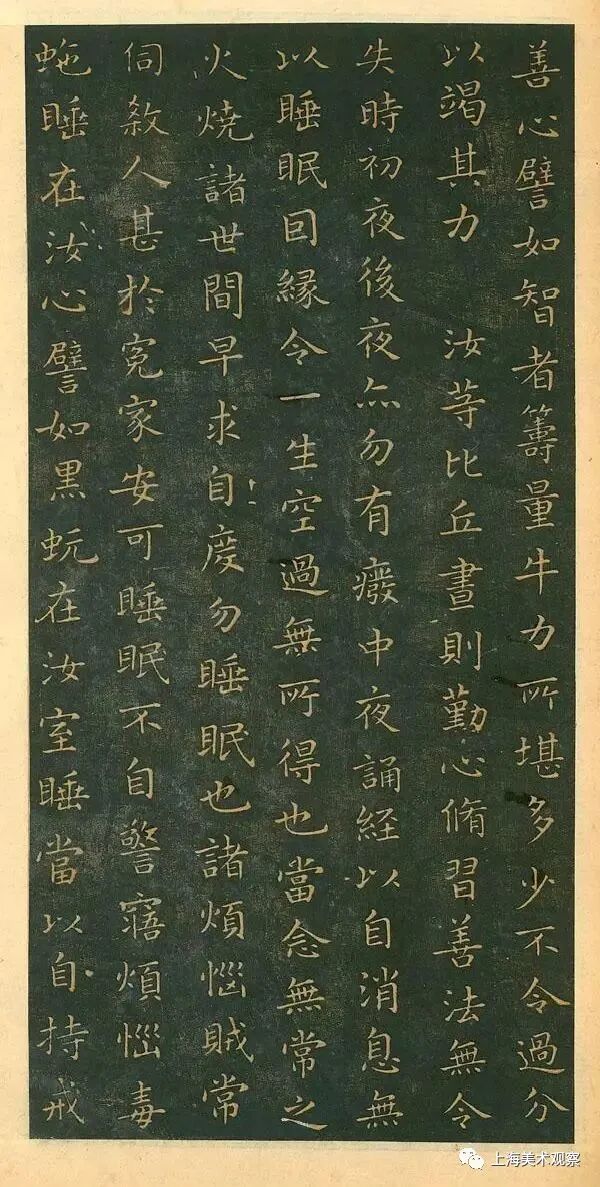 善心譬如智者籌量牛力所堪多少不令過分
以竭其力　汝䓁比丘晝則勤心脩習善法無令
失時初夜後夜亦勿有癈中夜誦経以自消息無
以睡眠因緣令一生空過無所得也當念無常之
火燒諸世間早求自度勿睡眠也諸煩惱賊常
伺敘人甚於寃家安可睡眠不自警寤煩惱毒
虵睡在汝心譬如黒蚖在汝室睡當以自持戒
上海美术观察